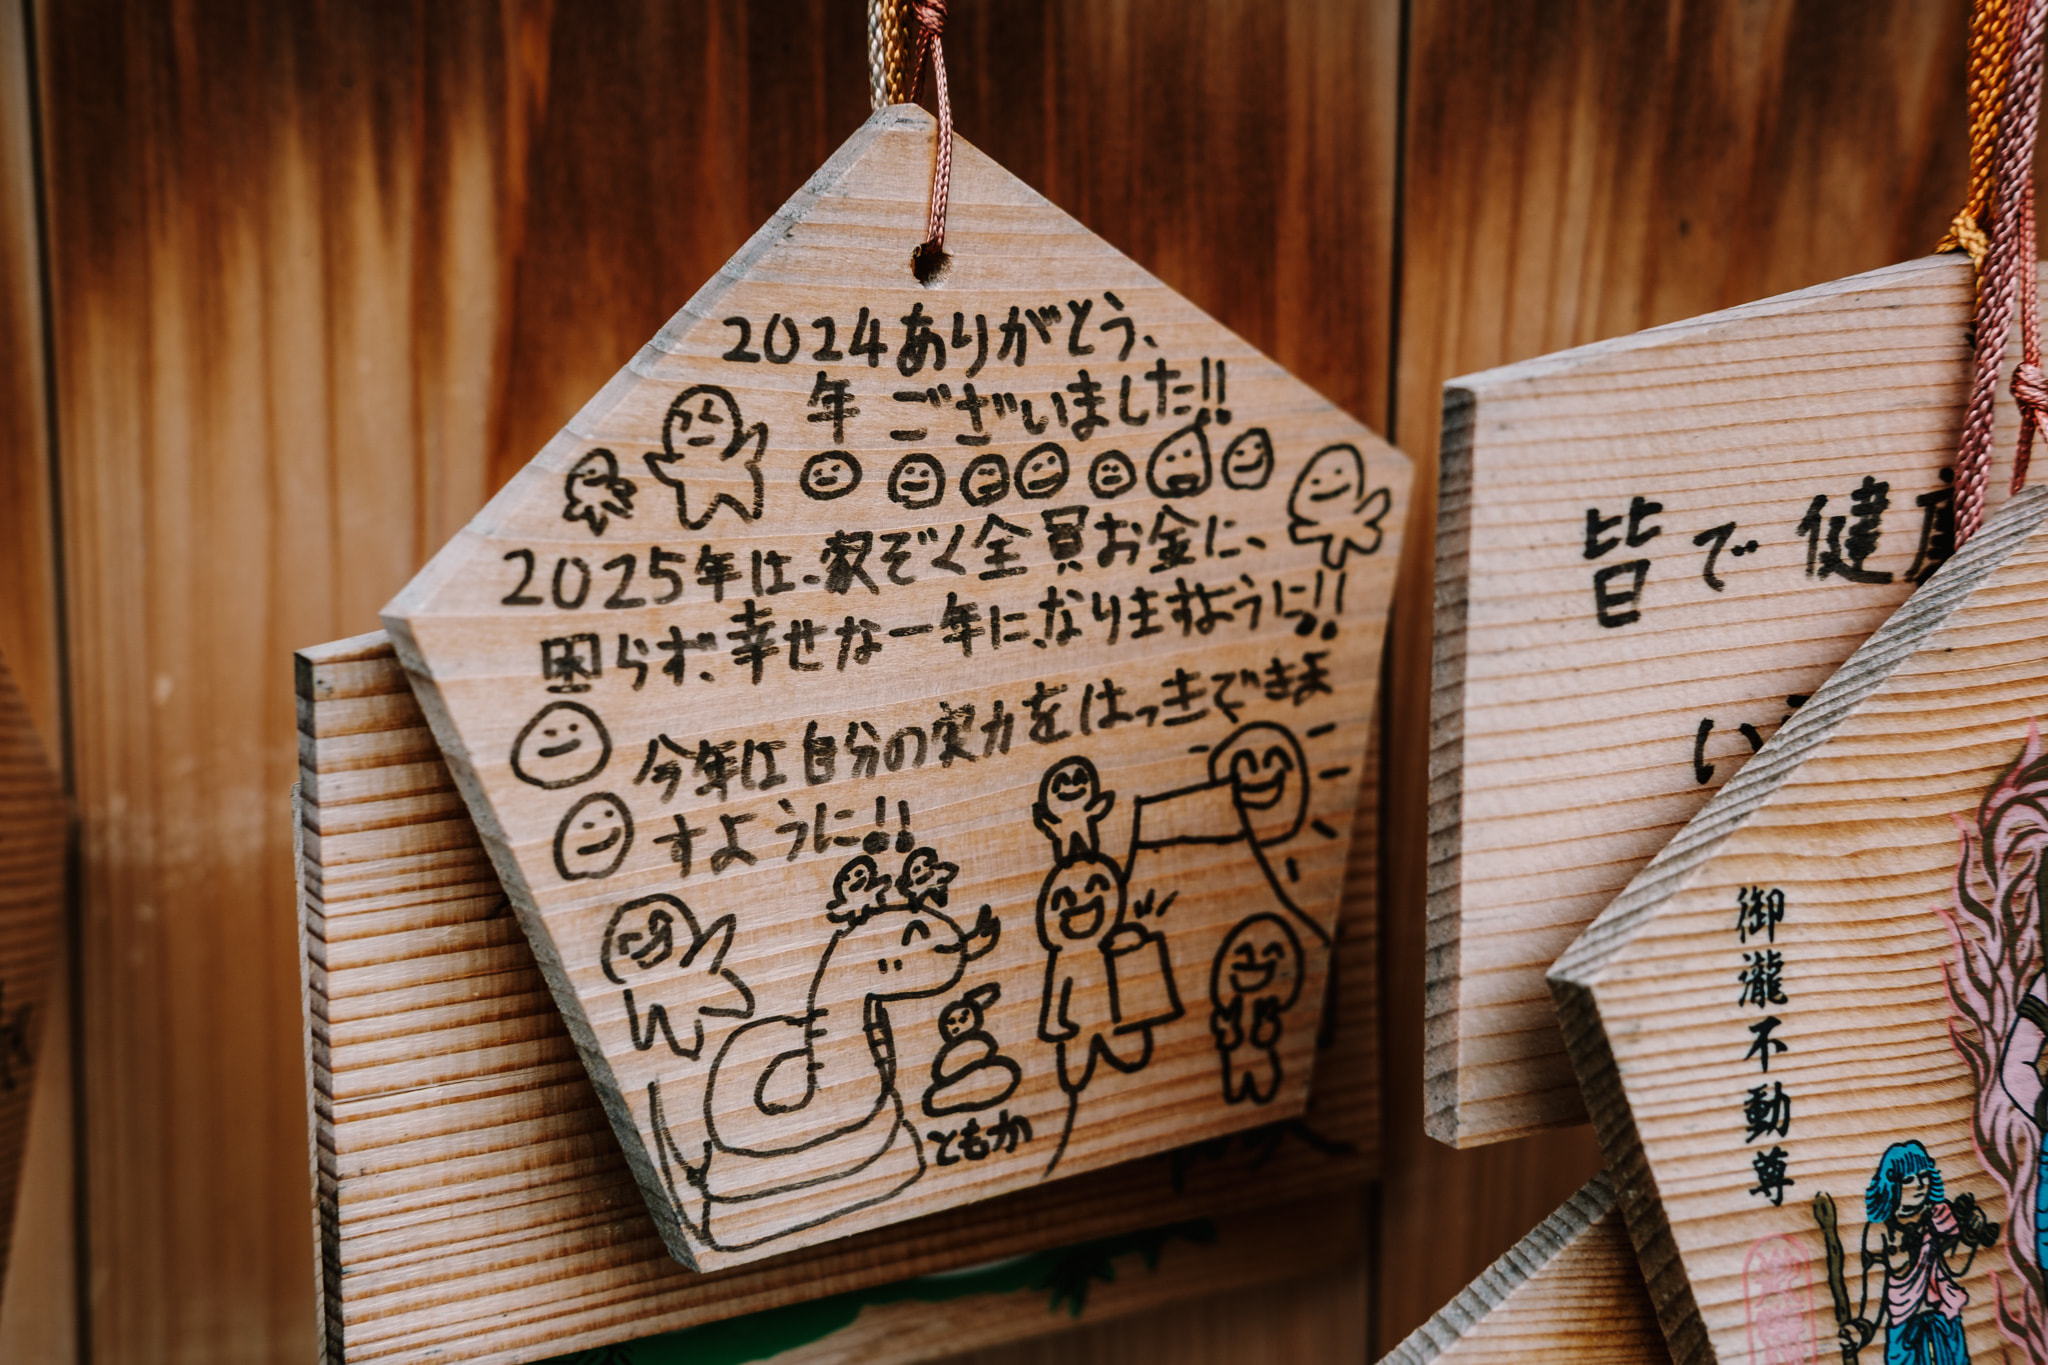 2024ありがとう、
年 ございました!!
2025年は、家ぞく全員お金に、
困らず、幸せな一年に、なりますように!!
今年は自分の実力をはっきできま
すように!!
ともか
皆で健康
い
御瀧不動尊